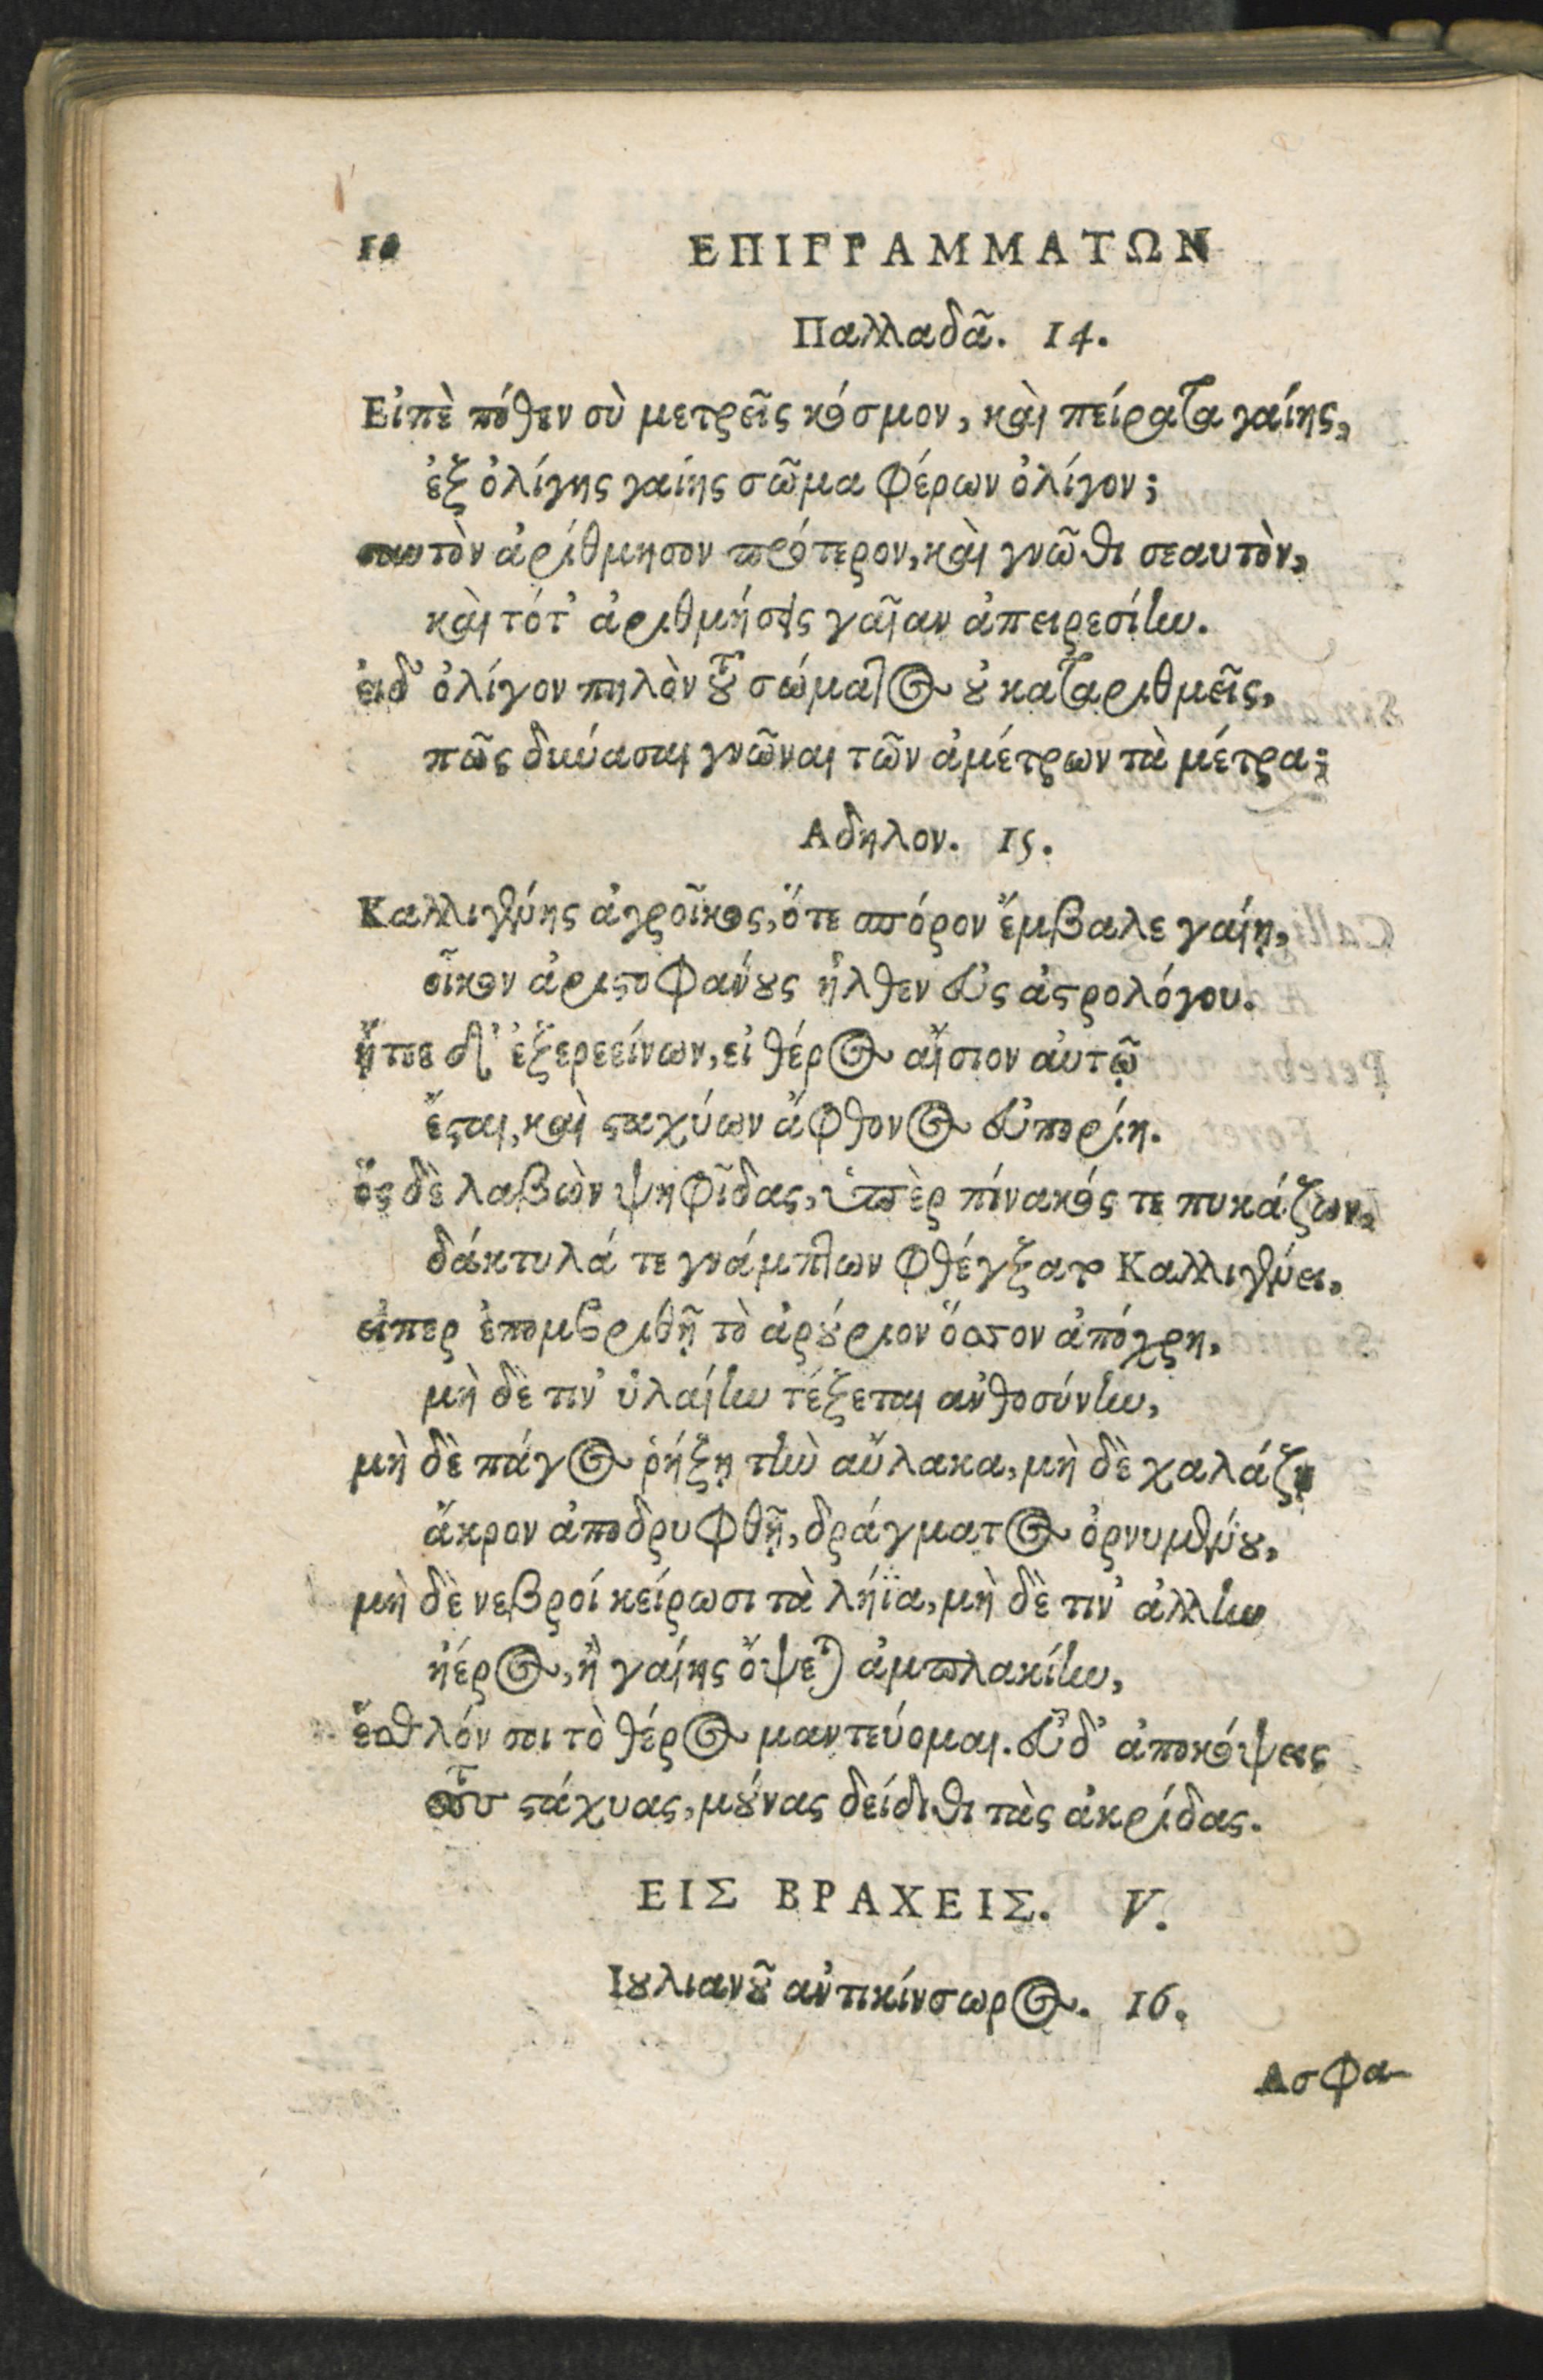 10 ΕΠΙΓΡΑΜΜΑΤΩΝ
Παλλαδᾶ. 14.
Εἰπὲ πόθεν σὺ μετρεῖς κόσμον, καὶ πείρατα γαίης,
ἐξ ὀλίγης γαίης σῶμα φέρων ὀλίγον;
σαυτὸν ἀρίθμησον πρότερον, καὶ γνῶθι σεαυτὸν,
καὶ τότ' ἀριθμήσεις γαῖαν ἀπειρεσίην.
εἰ δ' ὀλίγον πηλὸν τοῦ σώματος οὐ καταριθμεῖς,
πῶς δύνασαι γνῶναι τῶν ἀμέτρων τὰ μέτρα;
Αδηλον. 15.
Καλλιγένης ἀγροῖκος, ὅτε σπόρον ἔμβαλε γαίῃ,
οἶκον ἀριστοφάνους ἦλθεν ἐς ἀστρολόγου.
ᾔτεε δ' ἐξερεείνων, εἰ θέρος αἴσιον αὐτῷ
ἔσται, καὶ σταχύων ἄφθονος εὐπορίη.
ὃς δὲ λαβὼν ψηφῖδας, ὑπὲρ πίνακός τε πυκάζων,
δάκτυλά τε γνάμπτων φθέγξατο Καλλιγένει,
εἴπερ ἐπομβριθῇ τὸ ἀρούριον ὅσσον ἀπόχρη,
μὴ δὲ τιν' ὑλαίην τέξεται ἀνθοσύνην,
μὴ δὲ πάγος ῥήξῃ τὴν αὔλακα, μὴ δὲ χαλάζῃ
ἄκρον ἀποδρυφθῇ, δράγματος ὀρνυμένου,
μὴ δὲ νεβροί κείρωσι τὰ λήϊα, μὴ δὲ τιν' ἄλλην
ἠέρος, ἢ γαίης ὄψεται ἀμπλακίην,
ἐσθλόν σοι τὸ θέρος μαντεύομαι. εὖ δ' ἀποκόψεις
τοὺς στάχυας, μούνας δείδιθι τὰς ἀκρίδας.
ΕΙΣ ΒΡΑΧΕΙΣ. V.
Ιουλιανοῦ ἀντικίνσωρος. 16.
Ασφα-